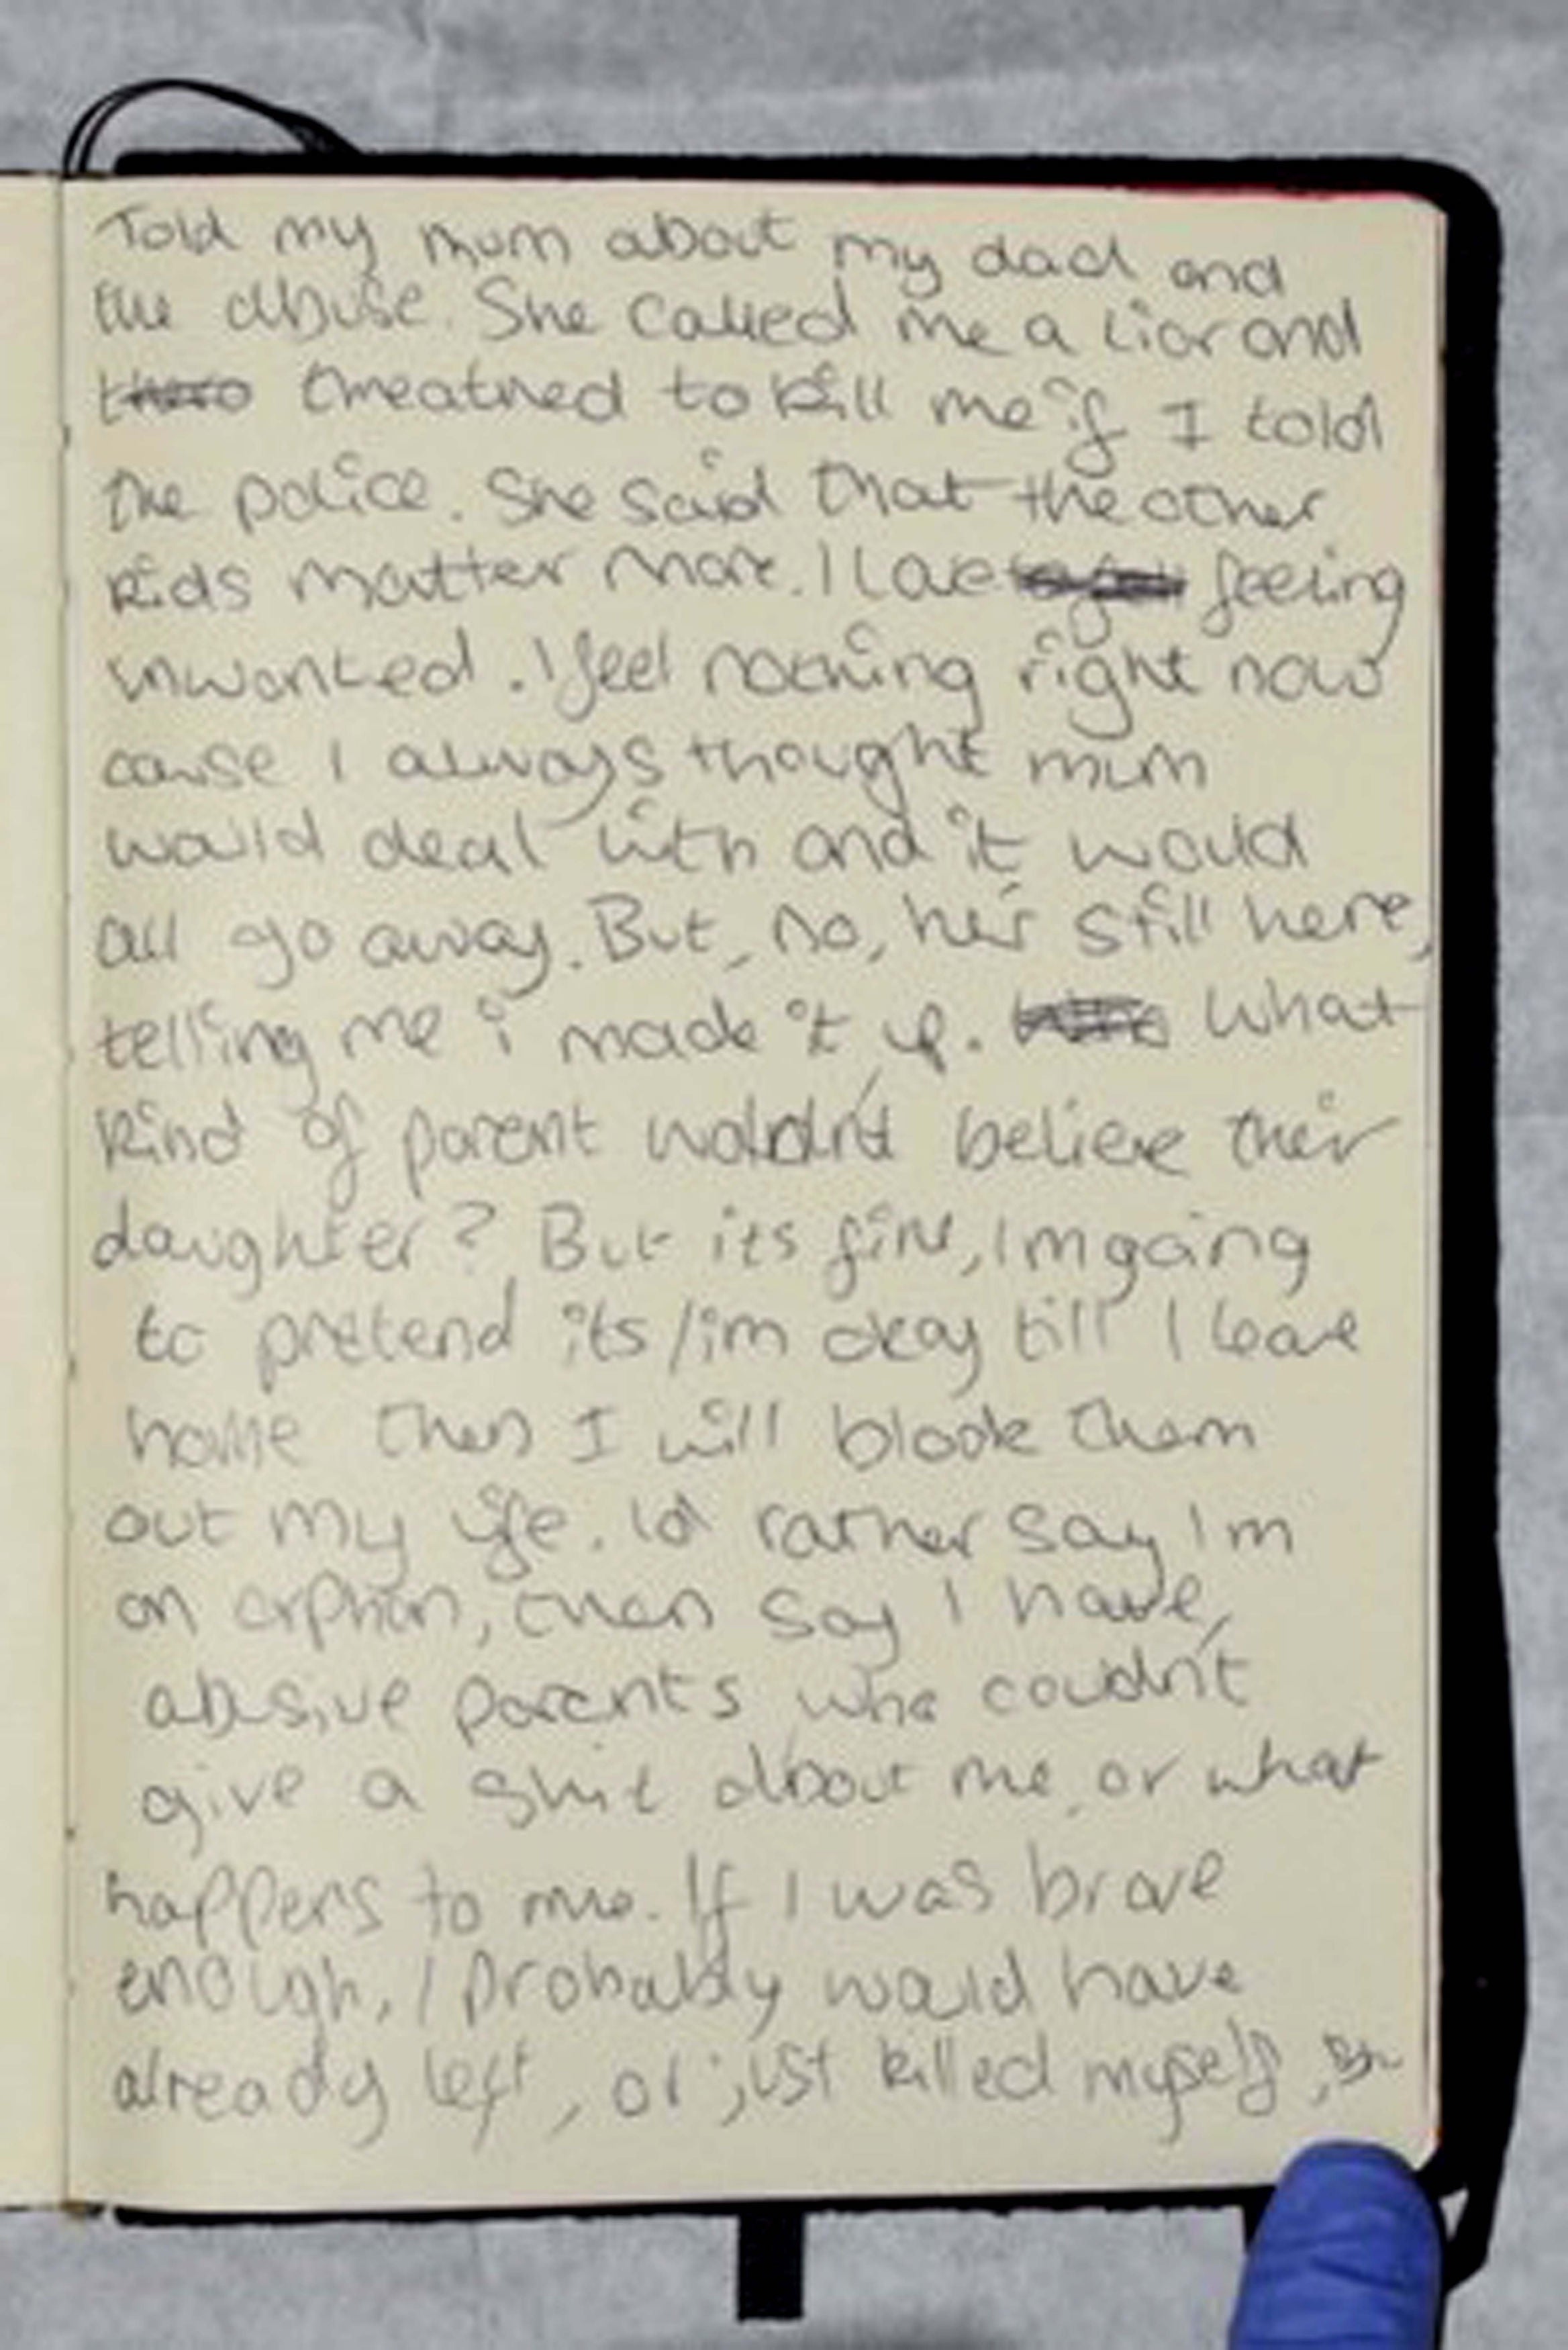 Told my mum about my dad and
the abuse. She called me a liar and
threatned to kill me if I told
the police. She said that the other
kids matter more. I love feeling
unwanted. I feel nothing right now
cause I always thought mum
would deal with and it would
all go away. But, no, he's still here,
telling me i made it up. What
kind of parent woldn't believe their
daughter? But its fine, Im going
to pretend its/im okay till I leave
home then I will blook them
out my life. Id rather say Im
an orphan, then say I have,
abusive parents who couldn't
give a shit about me, or what
happens to me. If I was brave
enough, I probably would have
already left, or just killed myself,